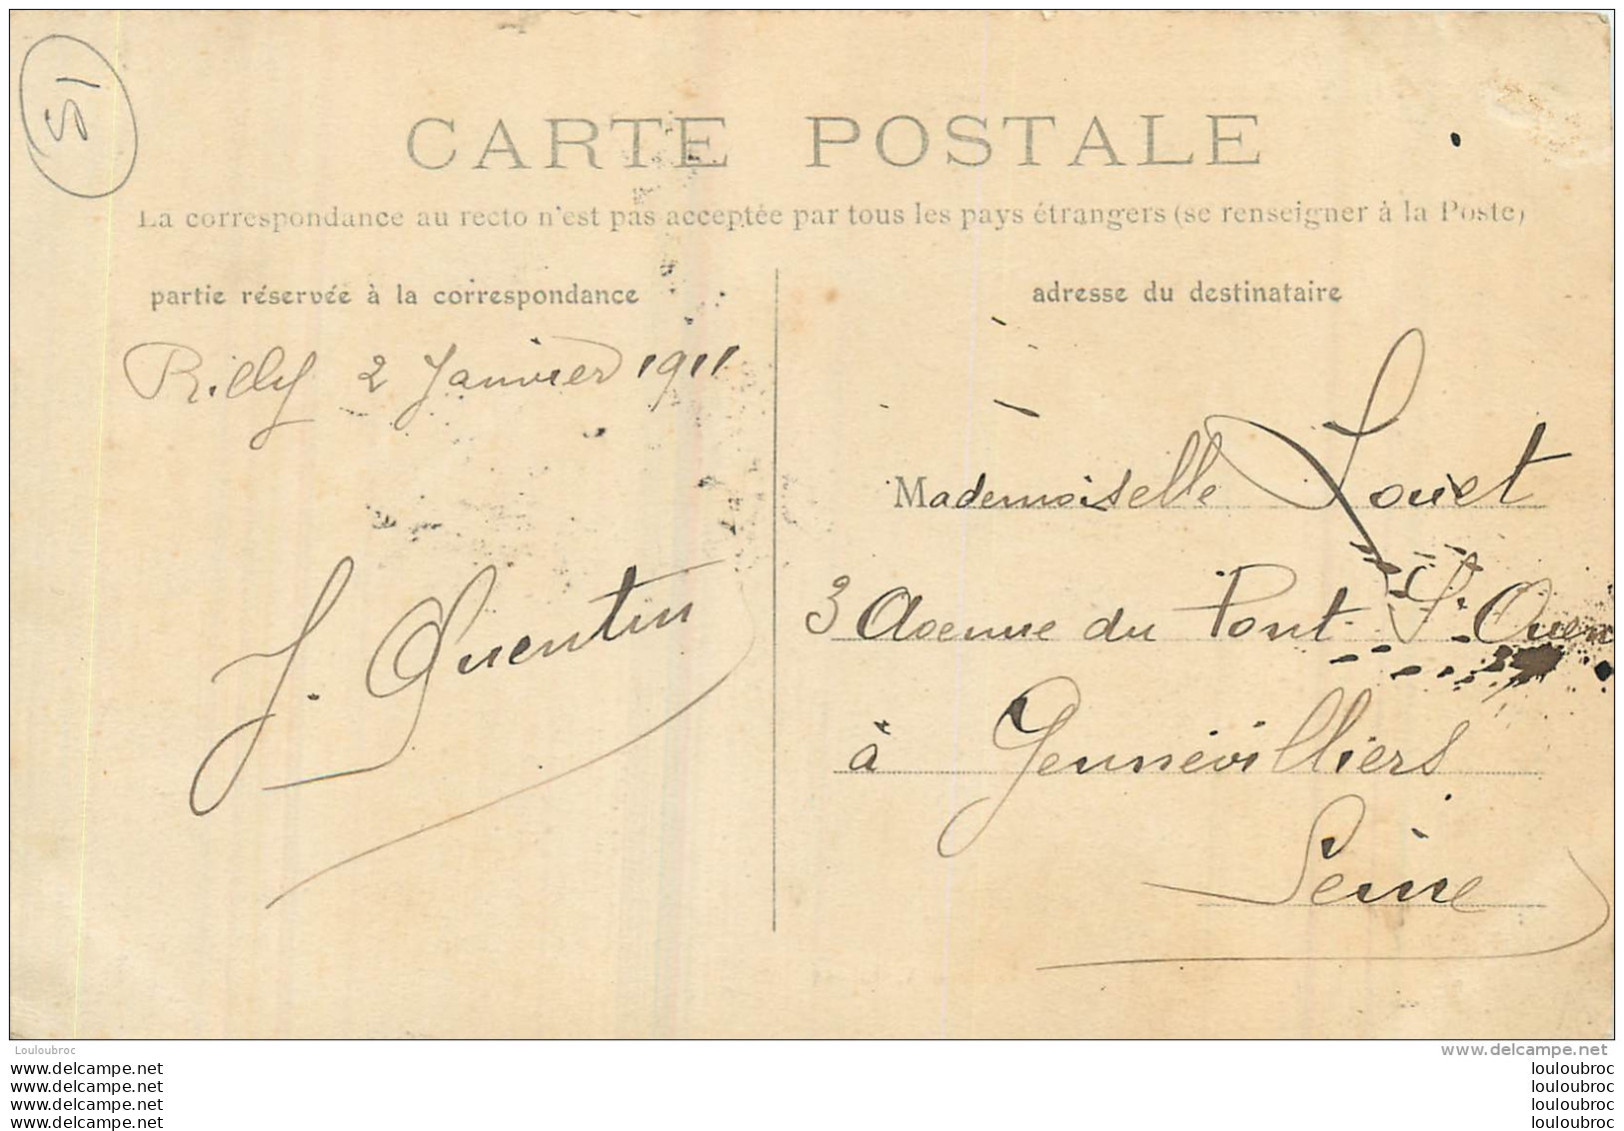 15
CARTE POSTALE
La correspondance au recto n'est pas acceptée par tous les pays étrangers (se renseigner à la Poste)
partie réservée à la correspondance
Rilly 2 Janvier 1911
J. Quentin
adresse du destinataire
Mademoiselle Louet
3 Avenue du Pont St Ouen
à Gennevilliers
Seine
Louloubroc
www.delcampe.net
www.delcampe.net
www.delcampe.net
www.delcampe.net
www.delcampe.net
louloubroc
louloubroc
louloubroc
louloubroc